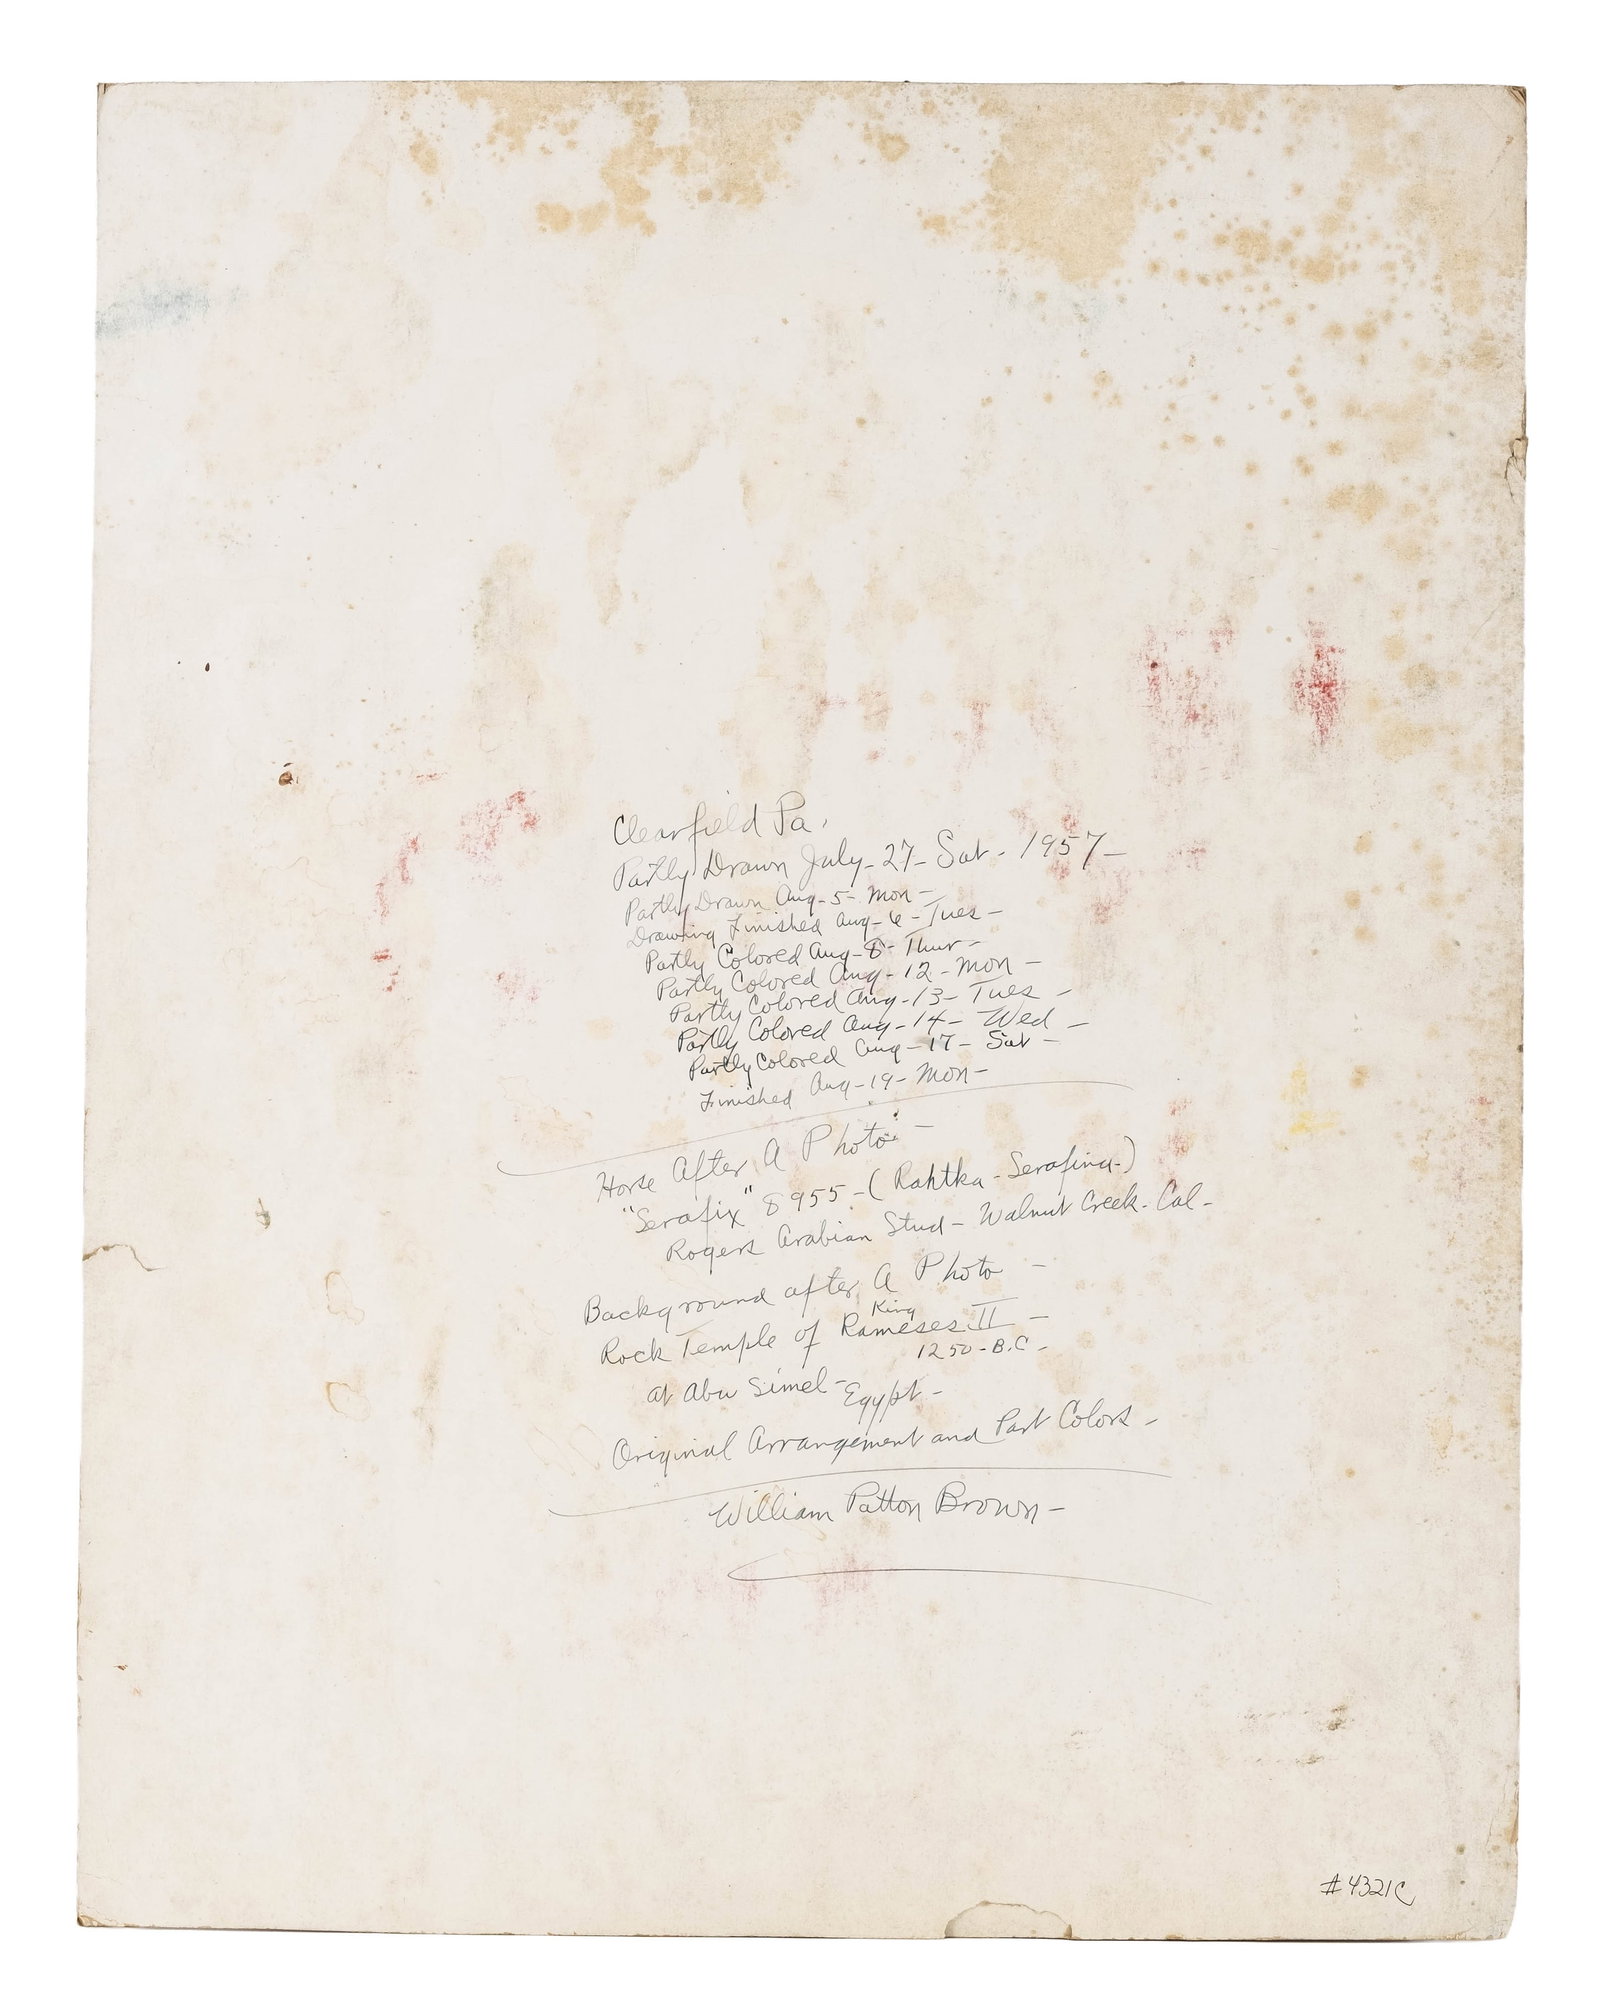 Clearfield Pa.
Partly Drawn July-27-Sat-1957-
Partly Drawn Aug-5-Mon-
Drawing Finished Aug-6-Tues-
Partly Colored Aug-8-Thur-
Partly Colored Aug-12-Mon-
Partly Colored Aug-13-Tues-
Partly Colored Aug-14-Wed-
Partly Colored Aug-17-Sat-
Finished Aug-19-Mon-
Horse After A Photo-
"Serafix" 8955-(Rahtka-Serafina-)
Rogers Arabian Stud-Walnut Creek-Cal-
Background after A Photo-
King
Rock Temple of Rameses II-
1250-B.C-
at Abu Simel-Egypt-
Original Arrangement and Part Colors-
William Patton Brown-
#4321C